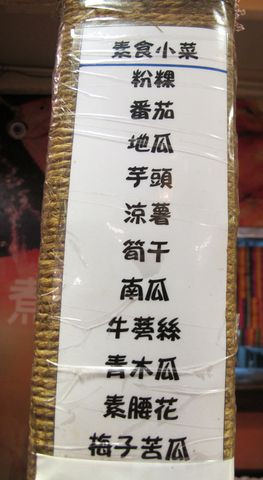 素食小菜
粉粿
番茄
地瓜
芋頭
涼薯
筍干
南瓜
牛蒡絲
青木瓜
素腰花
梅子苦瓜